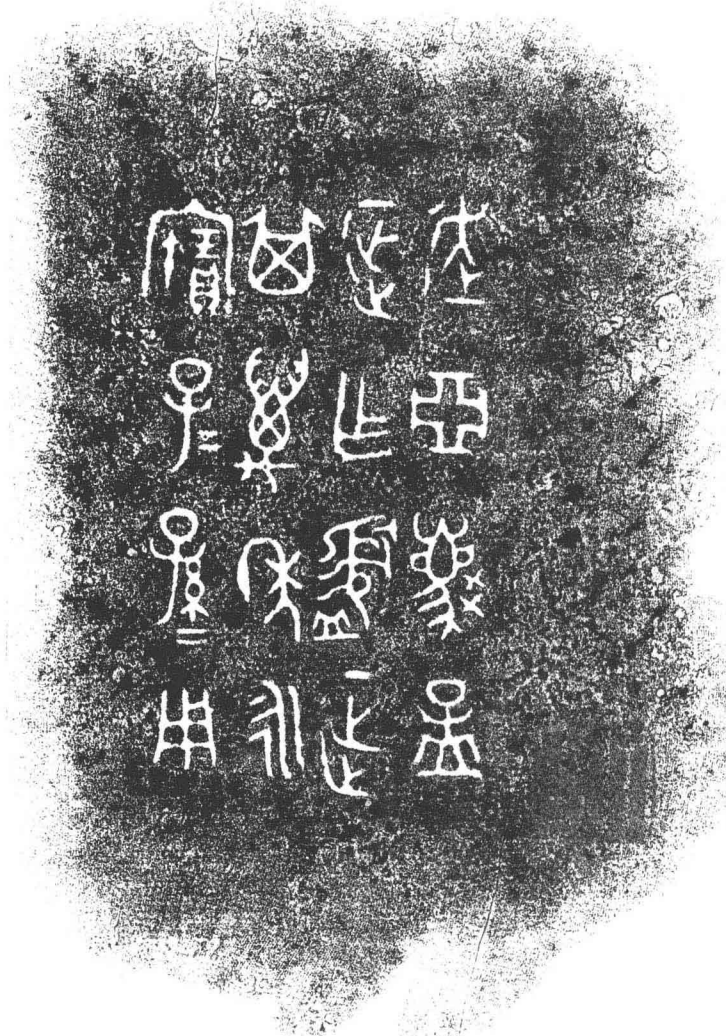 走亞孟
延乍盨延
其萬年永
寶子=孫=用